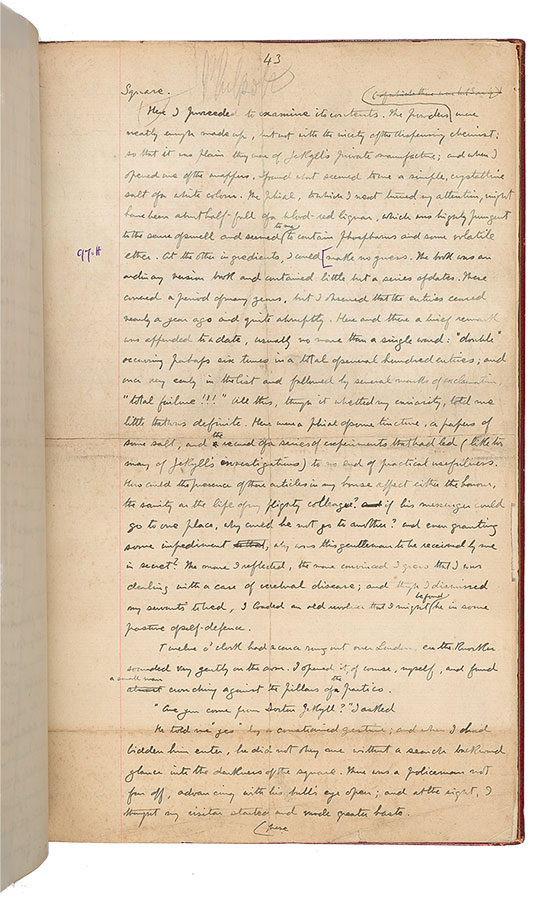 43
Philpott
Square.
Here I proceeded to examine its contents. The powders were
neatly enough made up, but not with the nicety of the dispensing chemist;
so that it was plain they were of Jekyll's private manufacture; and when I
opened one of the wrappers, I found what seemed to me a simple, crystalline
salt of a white colour. The phial, to which I next turned my attention, might
have been about half-full of a blood-red liquor, which was highly pungent
to the sense of smell and seemed to me to contain phosphorus and some volatile
97.H
ether. At the other ingredients, I could make no guess. The book was an
ordinary version book and contained little but a series of dates. These
covered a period of many years, but I observed that the entries ceased
nearly a year ago and quite abruptly. Here and there a brief remark
was appended to a date, usually no more than a single word: "double"
occurring perhaps six times in a total of several hundred entries; and
once very early in the list and followed by several marks of exclamation,
"total failure!!!" All this, though it whetted my curiosity, told me
little that was definite. Here were a phial of some tincture, a papers of
some salt, and the record of a series of experiments that had led (like too
many of Jekyll's investigations) to no end of practical usefulness.
How could the presence of these articles in my house affect either the honour,
the sanity or the life of my flighty colleague? if his messenger could
go to one place, why could he not go to another? and even granting
some impediment, why was this gentleman to be received by me
in secret? The more I reflected, the more convinced I grew that I was
dealing with a case of cerebral disease; and though I dismissed
my servants to bed, I loaded an old revolver that I might be found in some
posture of self-defence.
Twelve o'clock had scarce rung out over London, ere the knocker
sounded very gently on the door. I opened it, of course, myself, and found
a small man crouching against the pillars of the portico.
"Are you come from Doctor Jekyll?" I asked
He told me "yes" by a constrained gesture; and when I had
bidden him enter, he did not obey me without a search backward
glance into the darkness of the square. There was a policeman not
far off, advancing with his bull's eye open; and at the sight, I
thought my visitor started and made greater haste.
These